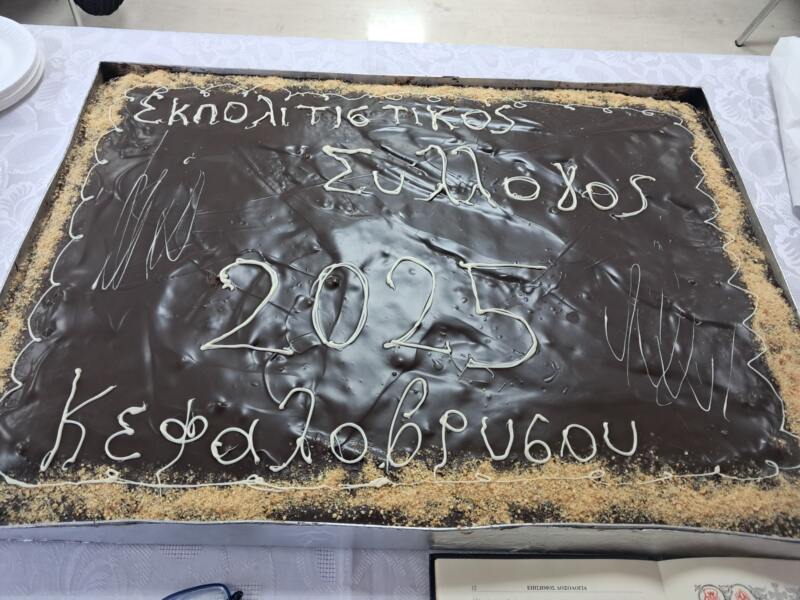 Εκπολιτιστικός
Σύλλογος
2025
Κεφαλοβρύσου
ΕΠΙΣΗΜΟΣ ΔΟΞΟΛΟΓΙΑ